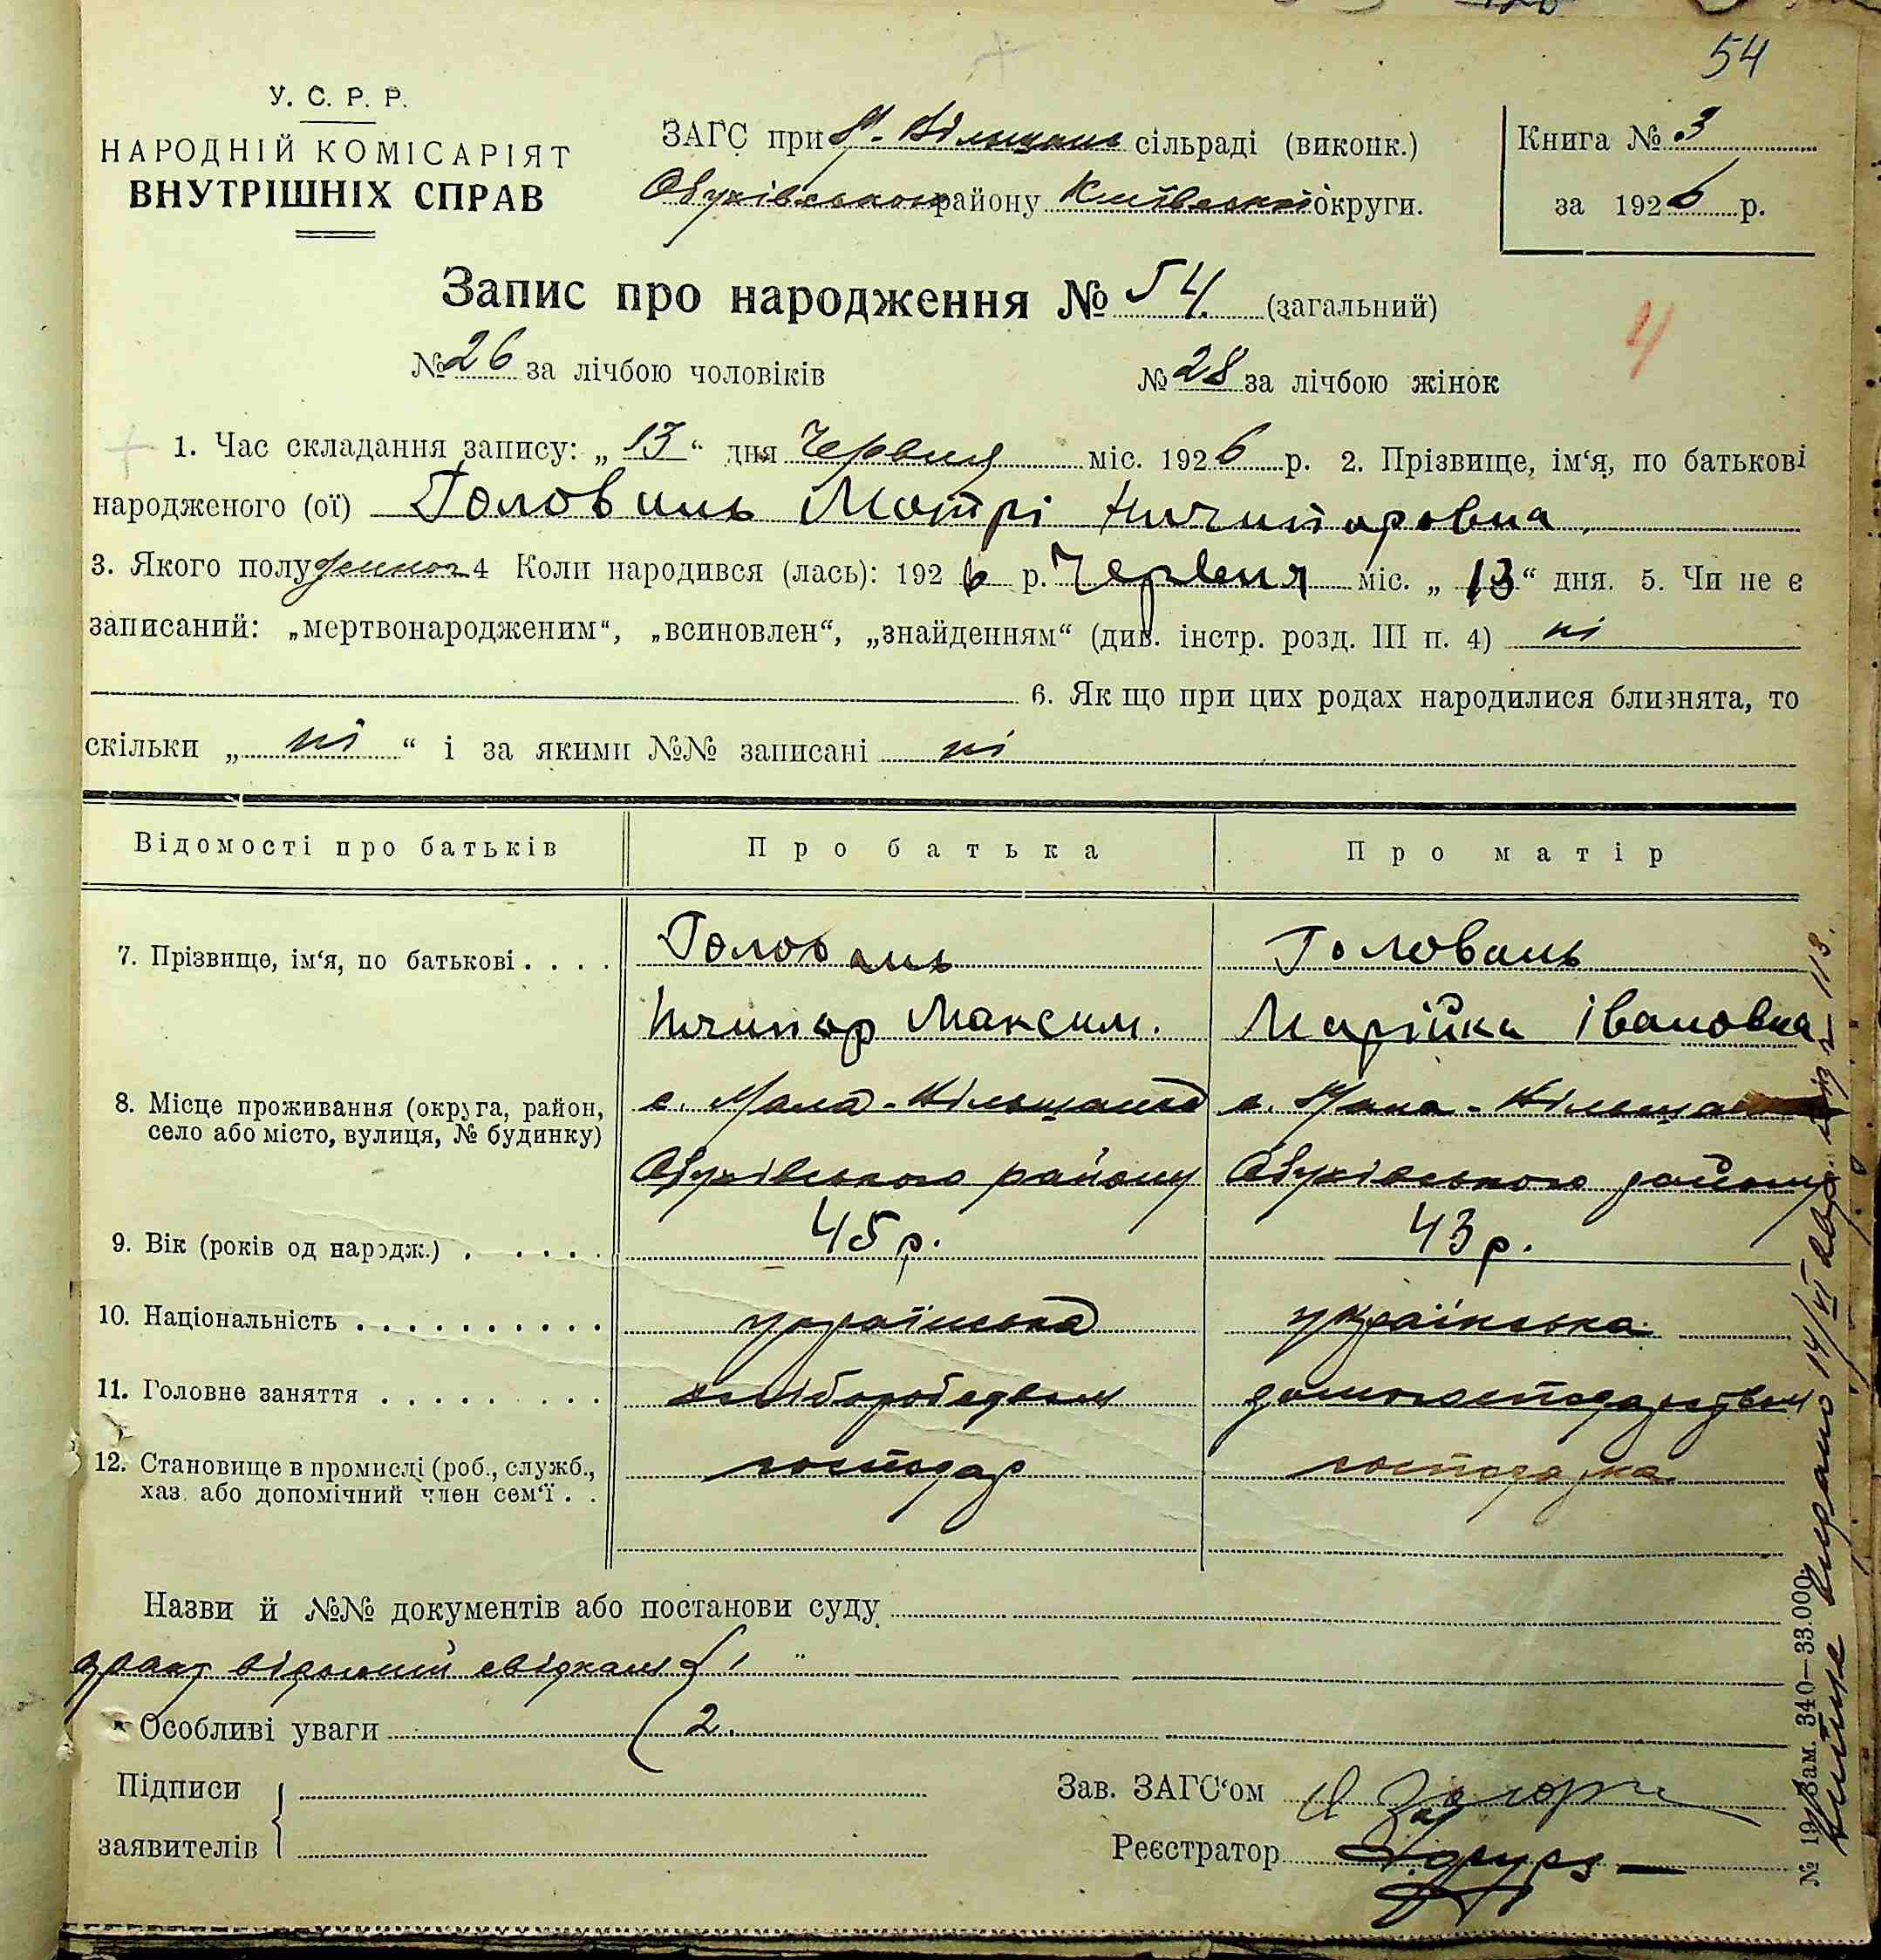 54
У. С. Р. Р.
НАРОДНІЙ КОМІСАРІЯТ
ВНУТРІШНІХ СПРАВ
ЗАГС при Вільщань сільраді (виконк.)
Обухівського району Київської округи.
Книга № 3
за 1926 р.
Запис про народження № 54. (загальний)
4
№ 26 за лічбою чоловіків № 28 за лічбою жінок
1. Час складання запису: „ 13 “ дня Червня міс. 1926 р. 2. Прізвище, ім‘я, по батькові
народженого (ої) Головань Мотрі Ничипоровна
3. Якого полу 4 Коли народився (лась): 1926 р. Червня міс. „ 13 “ дня. 5. Чи не є
записаний: „мертвонародженим“, „всиновлен“, „знайденням“ (див. інстр. розд. III п. 4) ні
6. Як що при цих родах народилися близнята, то
скільки „ ні “ і за якими №№ записані ні
Відомості про батьків Про батька Про матір
7. Прізвище, ім‘я, по батькові . . . . Головань Головань
Ничипор Максим. Марійка Івановна
8. Місце проживання (округа, район, с. Мала-Вільщанка с. Мала-
село або місто, вулиця, № будинку)
Обухівського району Обухівського району
9. Вік (років од народж.) . . . . . 45 р. 43 р.
10. Національність . . . . . . . . . . українська українська
11. Головне заняття . . . . . . . . .
12. Становище в промислі (роб., служб., господар господарка
хаз. або допомічний член сем‘ї . .
Назви й №№ документів або постанови суду
відомий свідкам 1
Особливі уваги 2.
Підписи
заявителів
Зав. ЗАГС‘ом
Реєстратор
№ 19 Зам. 340—33.000.
14/VI